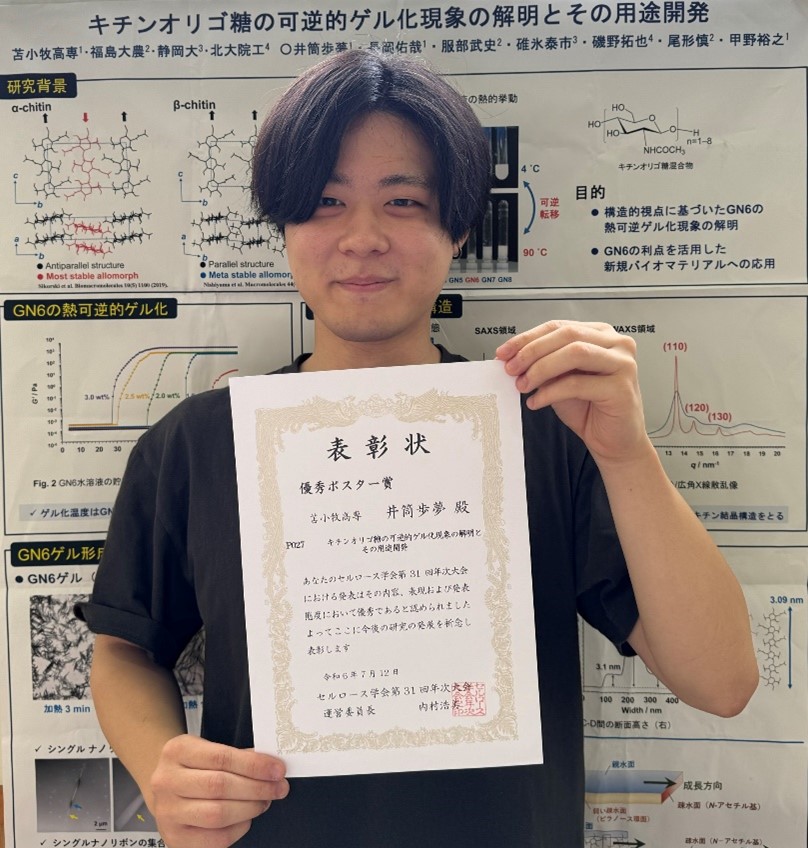 キチンオリゴ糖の可逆的ゲル化現象の解明とその用途開発
苫小牧高専1・福島大農2・静岡大3・北大院工4 〇井筒歩夢1・長岡佑哉1・服部武史2・碓氷泰市3・磯野拓也4・尾形慎2・甲野裕之1
研究背景
α-chitin
β-chitin
c
b
a
b
c
b
a
b
Antiparallel structure
Most stable allomorph
Sikorski et al. Biomacromolecules 10(5) 1100 (2019).
Parallel structure
Meta stable allomor
の熱的挙動
4 ℃
可逆
転移
90 ℃
GN5 GN6 GN7 GN8
HO
HO
HO
O
NHCOCH3
H
n=1–8
キチンオリゴ糖混合物
目的
構造的視点に基づいたGN6の
熱可逆ゲル化現象の解明
GN6の利点を活用した
新規バイオマテリアルへの応用
GN6の熱可逆的ゲル化
G' / Pa
3.0 wt%
2.5 wt%
2.0 wt%
Fig. 2 GN6水溶液の貯
✓ ゲル化温度はGN
構造
SAXS領域
WAXS領域
(110)
(120)
(130)
13 14 15 16 17 18 19 20
q / nm-1
/広角X線散乱像
キチン結晶構造をとる
GN6ゲル形成
GN6ゲル（
加熱 3 min
✓ シングルナノリボ
2 μm
✓ シングルナノリボンの集合
表彰状
優秀ポスター賞
苫小牧高専 井筒歩夢 殿
P027 キチンオリゴ糖の可逆的ゲル化現象の解明と
その用途開発
あなたのセルロース学会第31回年次大会
における発表はその内容、表現および発表
態度において優秀であると認められました
よってここに今後の研究の発展を祈念し
表彰します
令和6年7月12日
セルロース学会第31回年次大会
運営委員長 内村浩美
3.09 nm
3.1 nm
100 200 300 400
Width / nm
C-D間の断面高さ（右）
親水面
成長方向
疎水面（N-アセチル基）
弱い疎水面
（ピラノース環面）
疎水面（N－アセチル基）